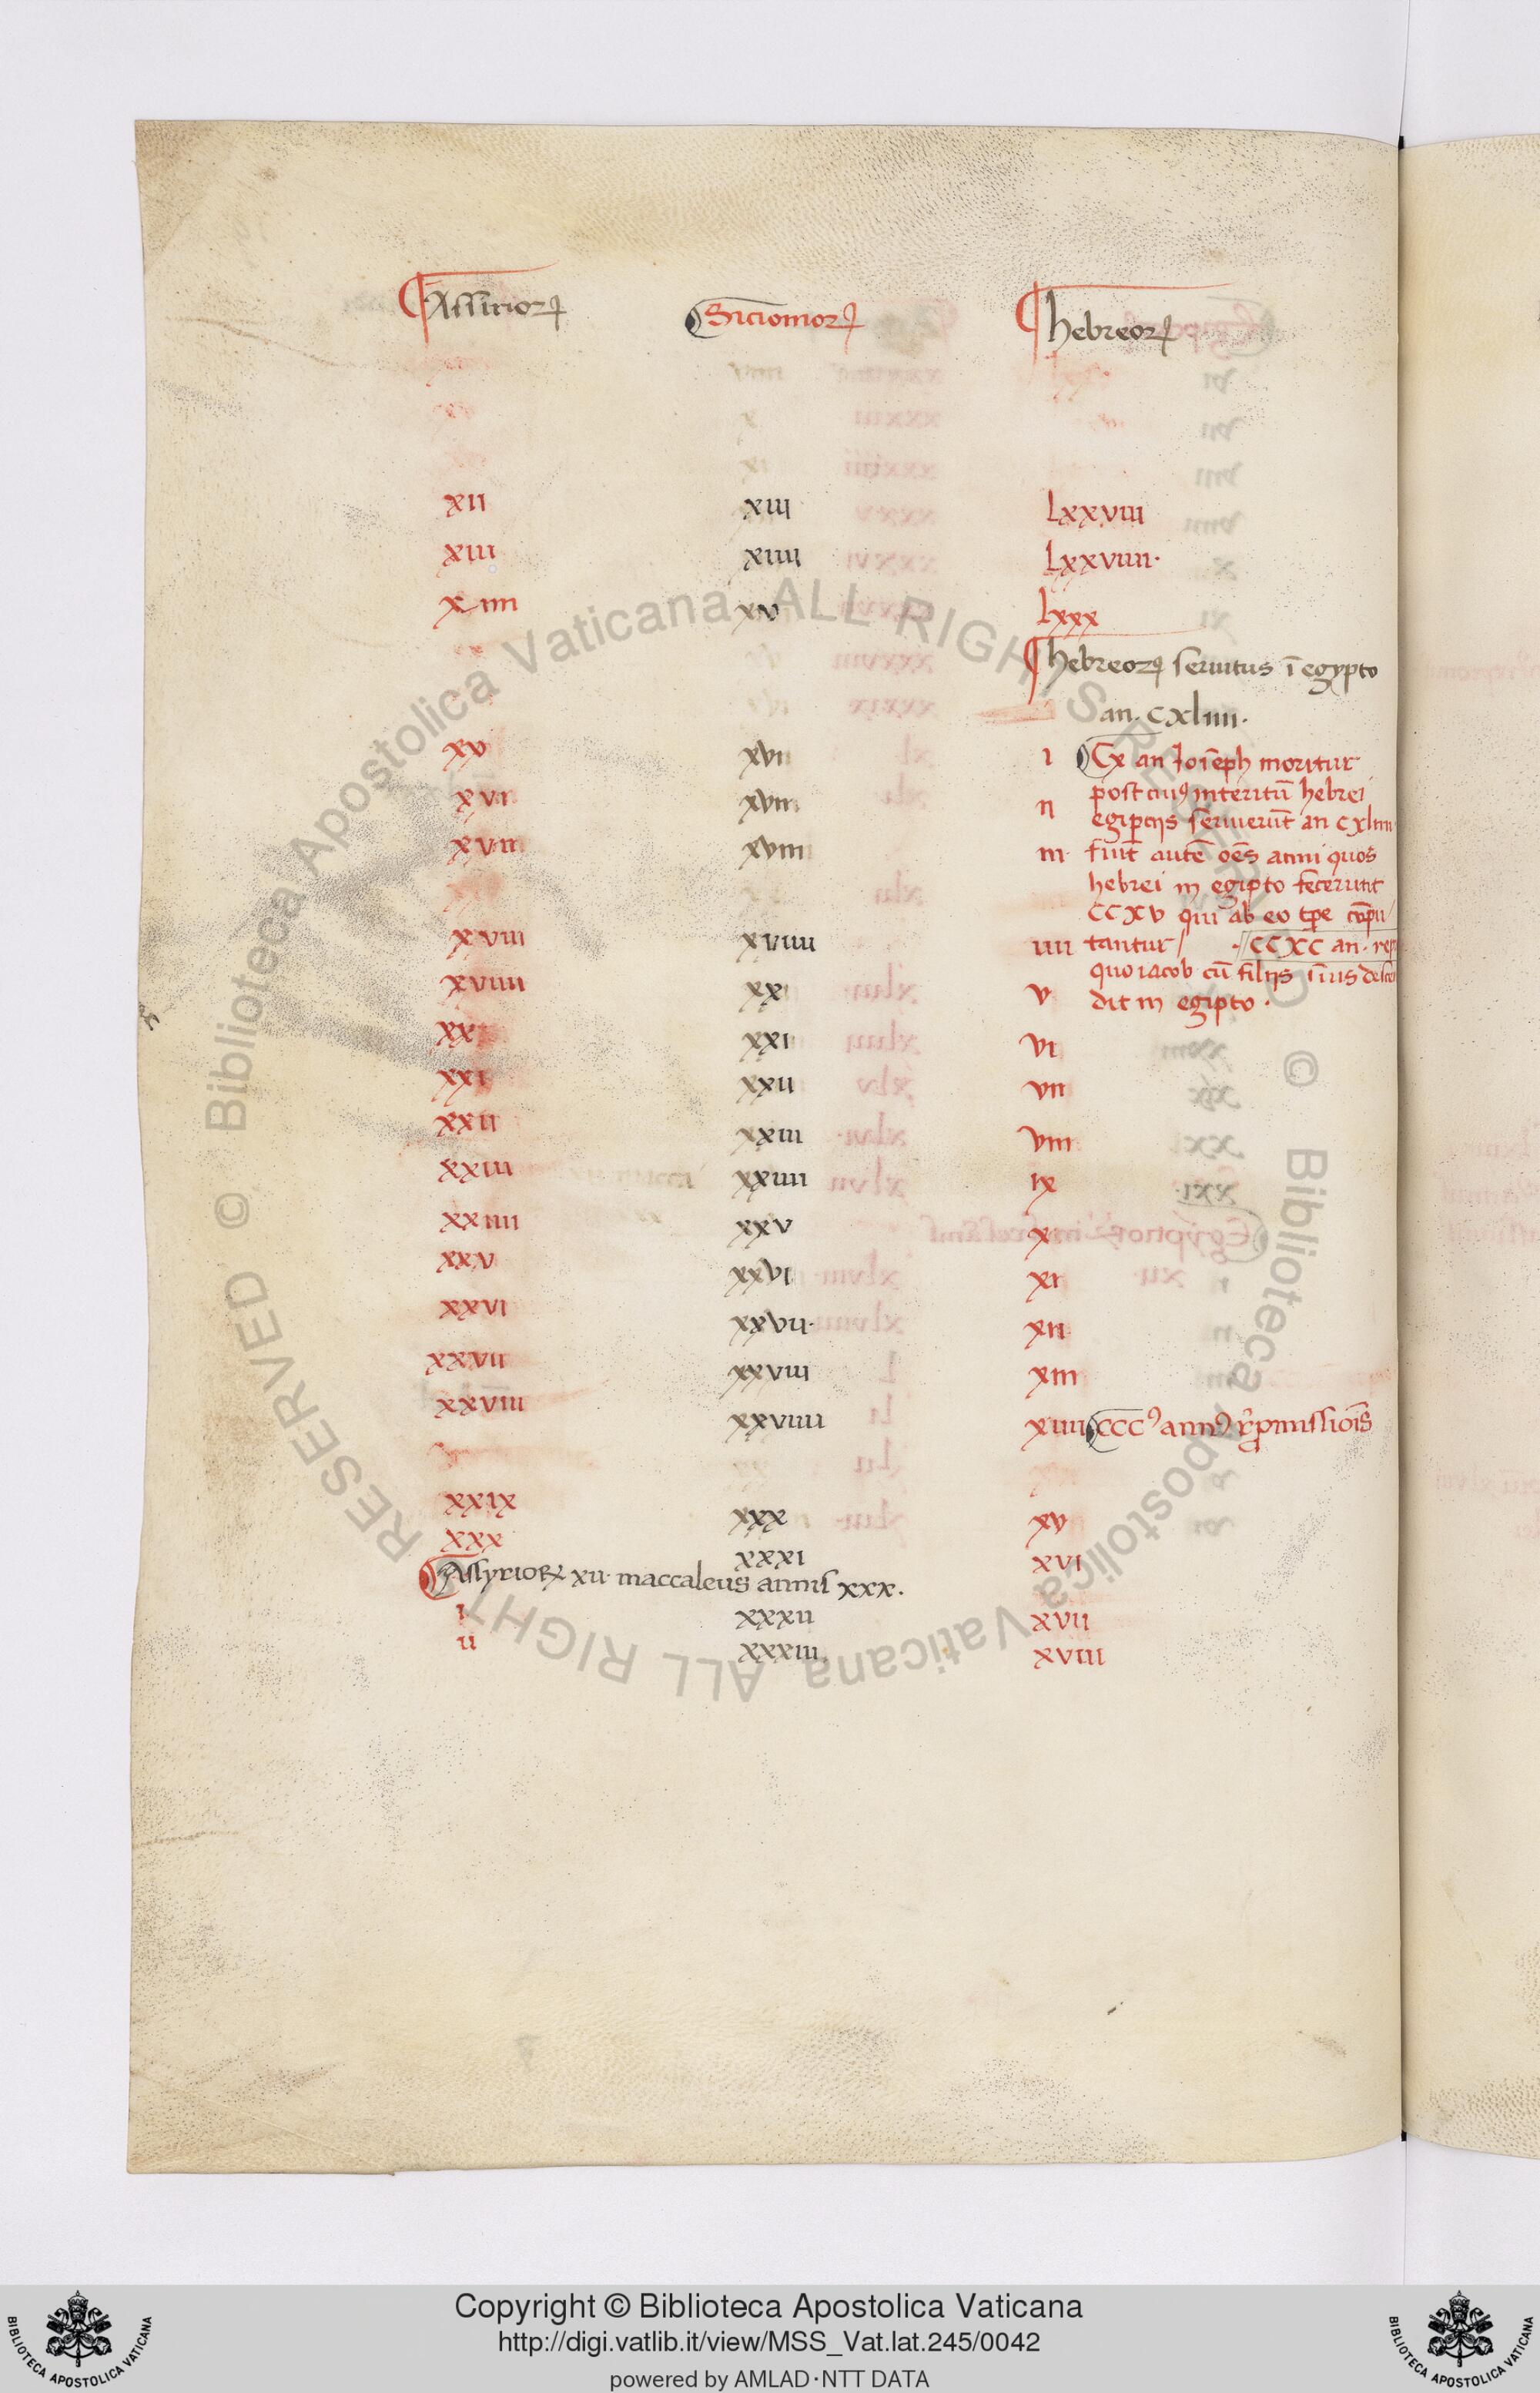 Assirioꝝ Sicionioꝝ hebreoꝝ
xii xiii lxxviii
xiii xiiii lxxviiii·
xiiii xv lxxx
hebreoꝝ seruitus ī egypto
an· cxliiii·
xv xvi i Cx an Ioseph moritur
post cuiꝰ interitū hebrei
xvi xvii ii egiptijs seruierūt an cxliiii
xvii xviii iii fiūt autē oēs anni quos
hebrei in egipto fecerunt
CCXV qui ab eo tp̄e cōpu
xviii xviiii iiii tantur / ·//CCXC an· rep
quo iacob cū filijs suis desce
xviiii xx v dit in egipto·
xx xxi vi
xxi xxii vii
xxii xxiii viii
xxiii xxiiii ix
xxiiii xxv x
xxv xxvi xi
xxvi xxvii· xii
xxvii xxviii xiii
xxviii xxviiii xiiii CCCꝰ annꝰ
xxix xxx xv
xxx xxxi xvi
Assyrioꝝ xii· maccaleus annis xxx.
i xxxii xvii
ii xxxiii xviii
© Biblioteca Apostolica Vaticana ALL RIGHTS RESERVED
© Biblioteca Apostolica Vaticana ALL RIGHT RESERVED
Copyright © Biblioteca Apostolica Vaticana
http://digi.vatlib.it/view/MSS_Vat.lat.245/0042
powered by AMLAD·NTT DATA
BIBLIOTECA APOSTOLICA VATICANA
BIBLIOTECA APOSTOLICA VATICANA